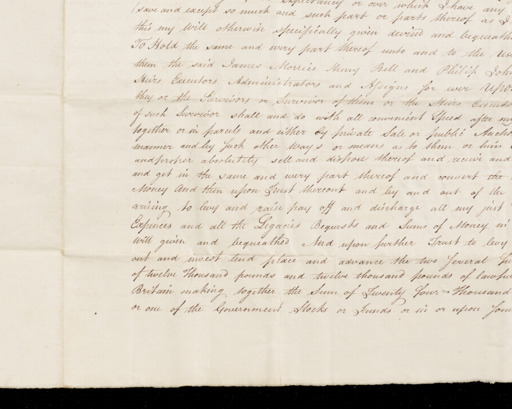 Expectancy or over which I have any
(save and except so much and such part or parts thereof as I
this my Will otherwise specifically given devised and bequeathed
To Hold the same and every part thereof unto and to the Use
them the said James Morrice Henry Bell and Philip John
Heirs Executors Administrators and Assigns for ever Upon
they or the Survivors or Survivor of them or the Heirs Executors
of such Survivor shall and do with all convenient Speed after my
together or in parcels and either by private Sale or public Auction
manner and by such other Ways or means as to them or him
and proper absolutely sell and dispose thereof and receive and
and get in the same and every part thereof and convert the
Money And then upon Trust thereout and by and out of the
arising to levy and raise pay off and discharge all my just
Expences and all the Legacies Bequests and Sums of Money in
Will given and bequeathed And upon further Trust to levy
out and invest lend place and advance the two several
of twelve thousand pounds and twelve thousand pounds of lawful
Britain making together the Sum of Twenty four Thousand
or one of the Government Stocks or Funds or in or upon